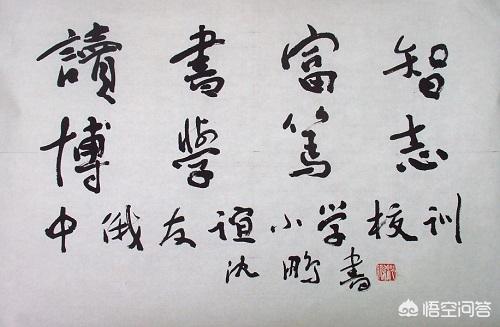 讀書富智
博學篤志
中俄友谊小学校训
沈鹏書
悟空问答